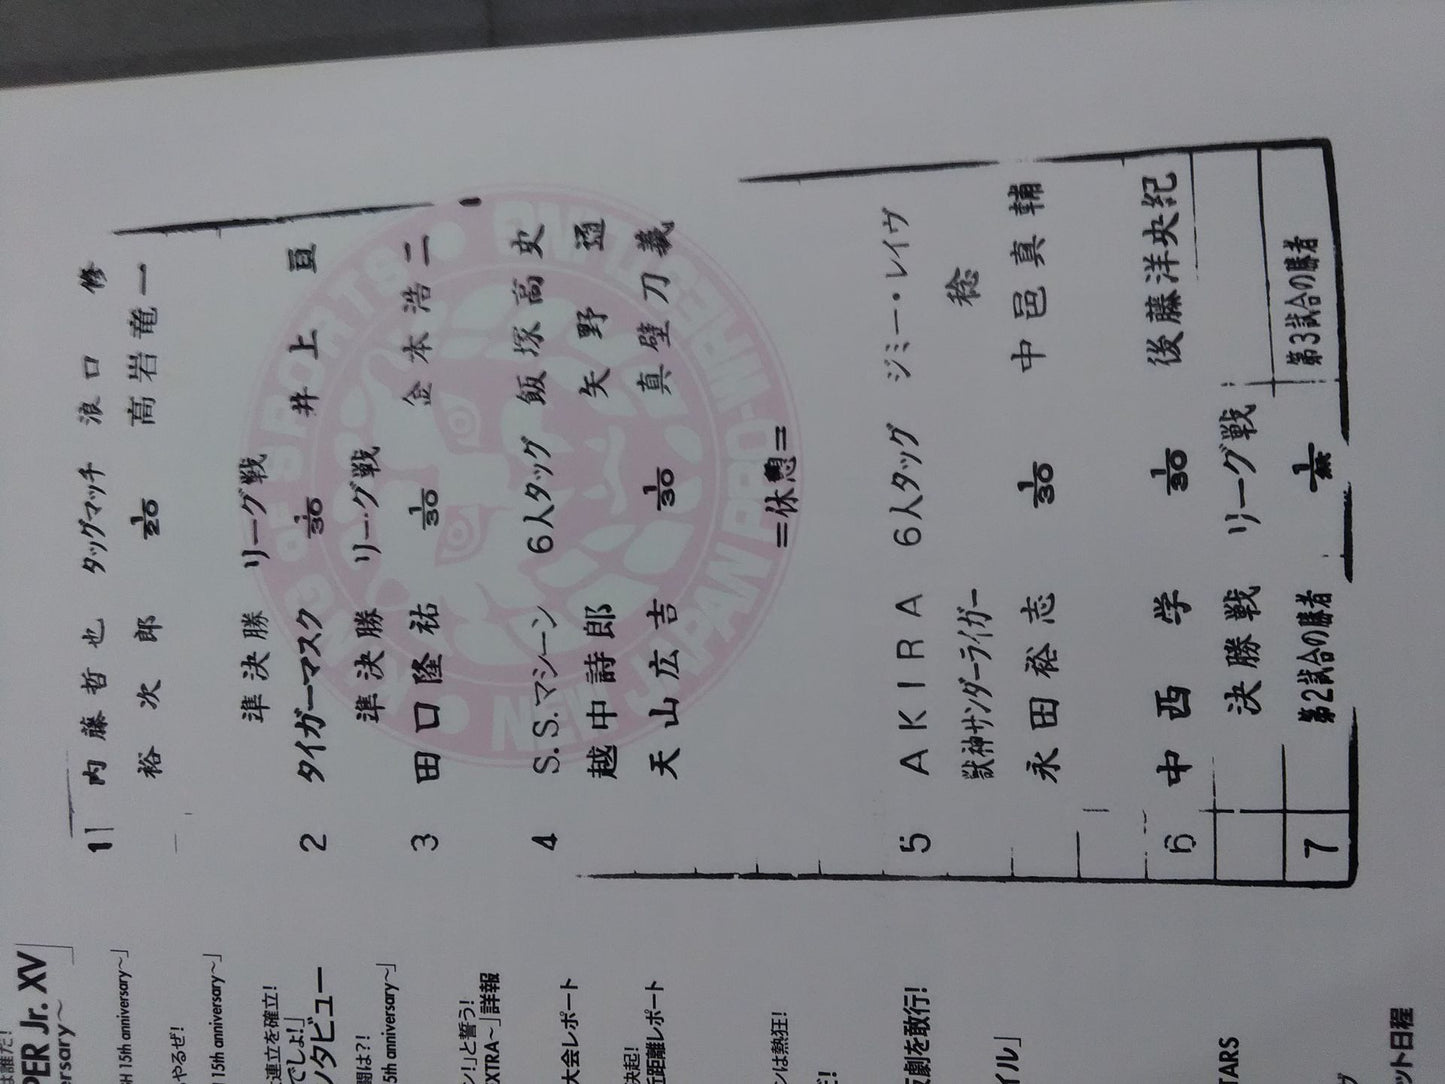 1 内藤哲也 タッグマッチ 浪口修
裕次郎 1/20 高岩竜一
準決勝 リーグ戦
2 タイガーマスク 1/30 井上亘
準決勝 リーグ戦
3 田口隆祐 1/30 金本浩二
4 S.S.マシーン 6人タッグ 飯塚高史
越中詩郎 矢野通
天山広吉 1/30 真壁刀義
=休憩=
5 AKIRA 6人タッグ ジミー・レイヴ
獣神サンダーライガー 稔
永田裕志 1/30 中邑真輔
6 中西学 1/30 後藤洋央紀
決勝戦 リーグ戦
7 第2試合の勝者 1/無 第3試合の勝者
KING of SPORTS
NEW JAPAN PRO-WRESTLING
は誰だ!
PER Jr. XV
ersary〜」
H 15th anniversary〜」
やるぜ!
15th anniversary〜」
連立を確立!
でしょ!」
ンタビュー
闘は?!
5th anniversary〜」
ン!」と誓う!
XTRA〜」詳報
大会レポート
決起!
近距離レポート
ンは熱狂!
だ!
反劇を敢行!
イル」
TARS
ット日程